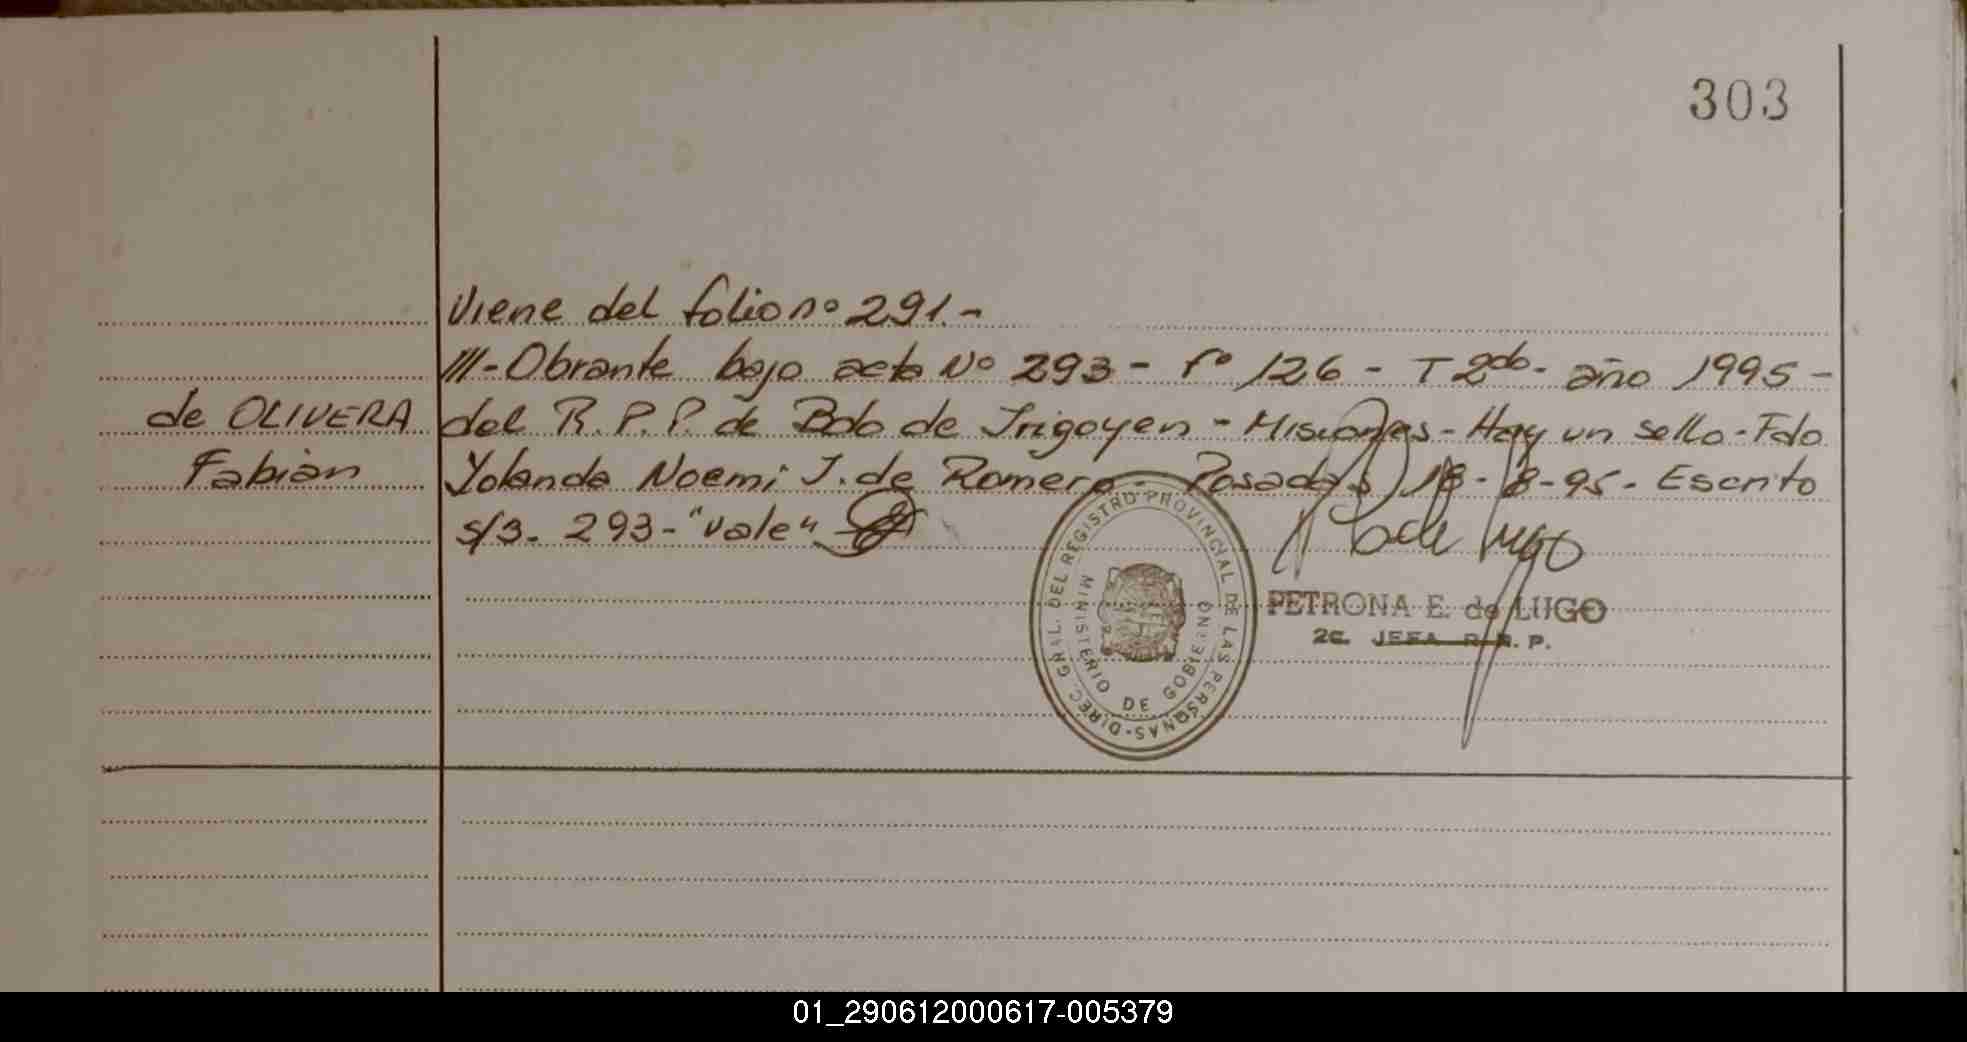 303
Viene del folio nº 291.-
///-Obrante bajo acta Nº 293 - Fº 126 - T 2do - año 1995 -
de OLIVERA
del R.P.P. de Bdo de Irigoyen - Misiones - Hay un sello - Fdo
Fabián
Yolanda Noemi J. de Romero - Posadas, 18-8-95 - Escrito
s/3. 293 - "Vale"
DIREC. GRAL. DEL REGISTRO PROVINCIAL DE LAS PERSONAS
MINISTERIO DE GOBIERNO
PETRONA E. de LUGO
2a. JEFA R.P.P.
01_290612000617-005379